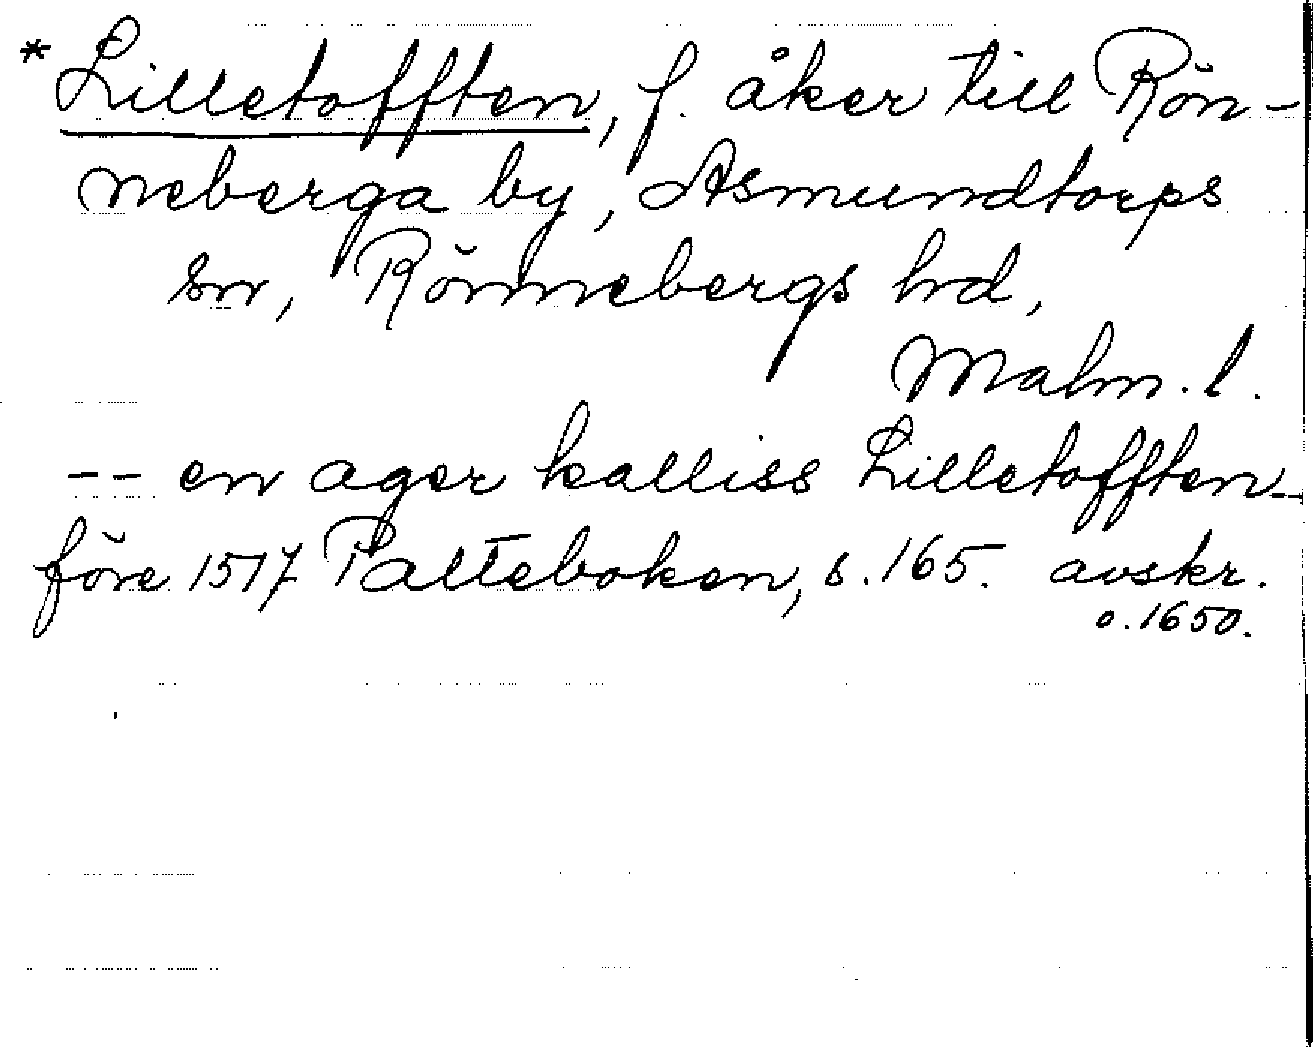 * Lilletofften, f. åker till Rön-
neberga by, Asmundtorps
sn, Rönnebergs hd,
Malm. l.
-- en ager kalliss Lilletofften--
före 1517 Palteboken, s. 165. avskr.
o. 1650.